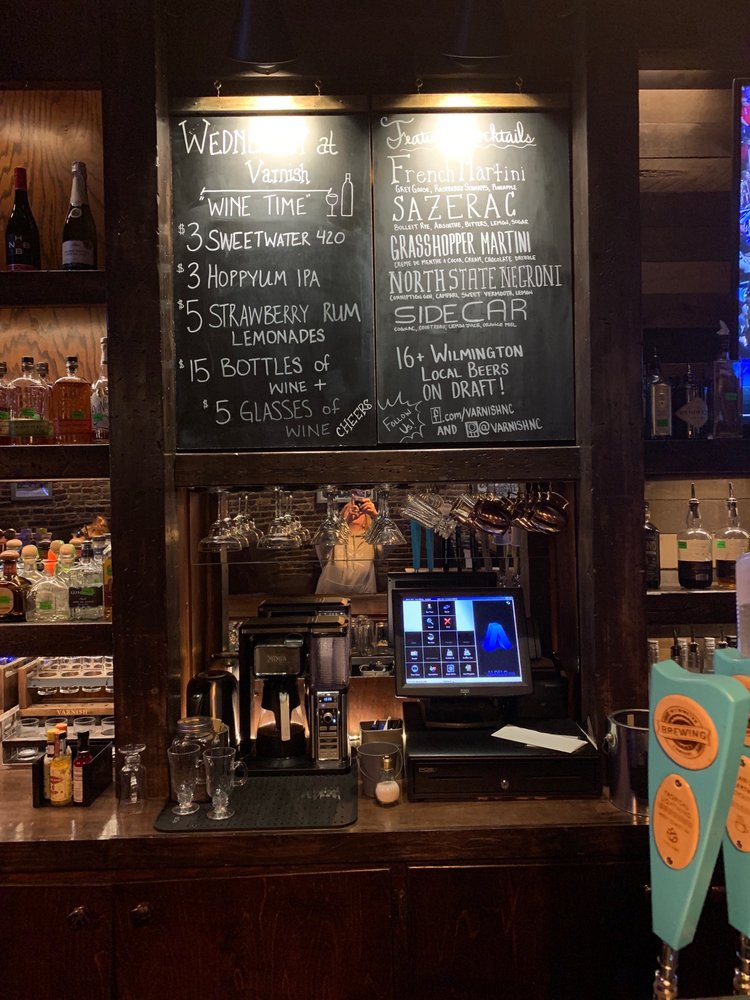 WEDNESDAY at
Varnish
"WINE TIME"
$3 SWEETWATER 420
$3 HOPPYUM IPA
$5 STRAWBERRY RUM
LEMONADES
$15 BOTTLES of
WINE +
$5 GLASSES of
WINE
CHEERS
Cocktails
French Martini
GREY GOOSE, RASPBERRY SCHNAPPS, PINEAPPLE
SAZERAC
BULLEIT RYE, ABSINTHE, BITTERS, LEMON, SUGAR
GRASSHOPPER MARTINI
CREME DE MENTHE & COCOA, CREAM, CHOCOLATE DRIZZLE
NORTH STATE NEGRONI
CONNIPTION GIN, CAMPARI, SWEET VERMOUTH, LEMON
SIDECAR
COGNAC, LEMON JUICE, ORANGE PEEL
16+ WILMINGTON
LOCAL BEERS
ON DRAFT!
FOLLOW
US!
f.com/VARNISHNC
AND @VARNISHNC
NINJA
VARNISH
BREWING
TROPICAL